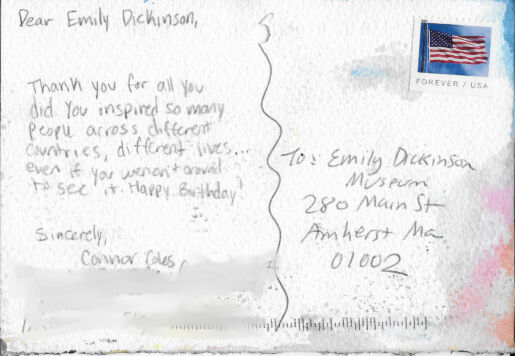 Dear Emily Dickinson,
Thank you for all you
did. You inspired so many
people across different
countries, different lives...
even if you weren't around
to see it. Happy Birthday!
Sincerely,
Connor Coles,
FOREVER / USA
To: Emily Dickinson
Museum
280 Main St
Amherst Ma
01002